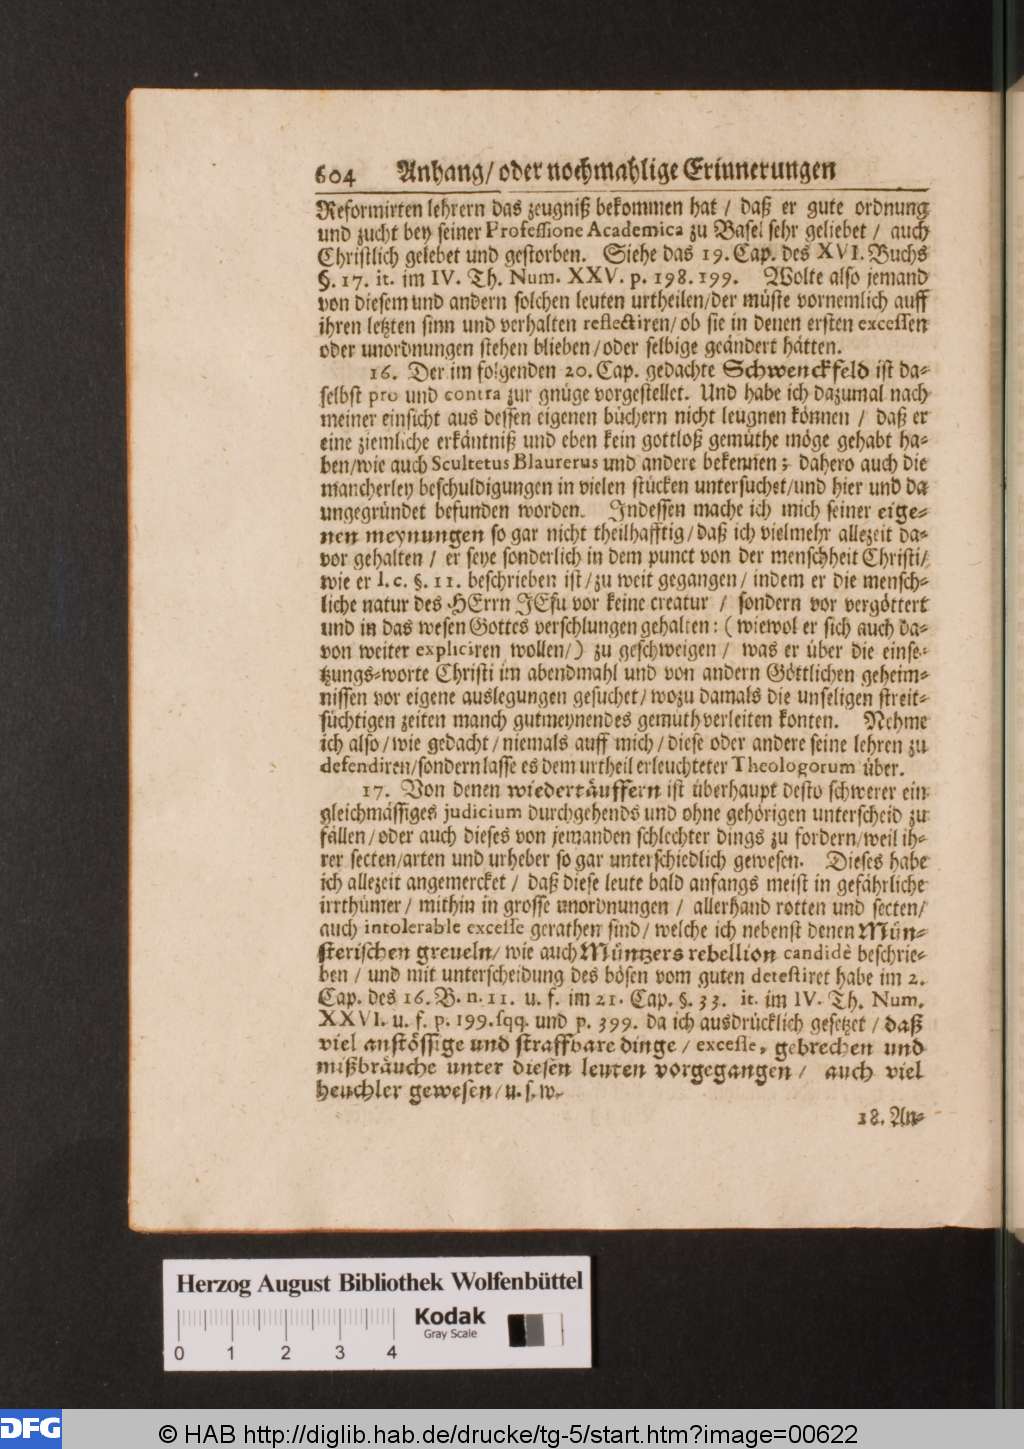 604 Anhang/ oder nochmahlige Erinnerungen
Reformirten lehrern das zeugniß bekommen hat / daß er gute ordnung
und zucht bey seiner Professione Academica zu Basel sehr geliebet / auch
Christlich gelebet und gestorben. Siehe das 19. Cap. des XVI. Buchs
§. 17. it. im IV. Th. Num. XXV. p. 198. 199. Wolte also jemand
von diesem und andern solchen leuten urtheilen/der müste vornemlich auff
ihren letzten sinn und verhalten reflectiren/ ob sie in denen ersten excessen
oder unordnungen stehen blieben/oder selbige geändert hätten.
16. Der im folgenden 20. Cap. gedachte Schwenckfeld ist da-
selbst pro und contra zur gnüge vorgestellet. Und habe ich dazumal nach
meiner einsicht aus dessen eigenen büchern nicht leugnen können / daß er
eine ziemliche erkäntniß und eben kein gottloß gemüthe möge gehabt ha-
ben/wie auch Scultetus Blaurerus und andere bekennen; dahero auch die
mancherley beschuldigungen in vielen stücken untersuchet/und hier und da
ungegründet befunden worden. Indessen mache ich mich seiner eige-
nen meynungen so gar nicht theilhafftig/daß ich vielmehr allezeit da-
vor gehalten / er seye sonderlich in dem punct von der menschheit Christi/
wie er l. c. §. 11. beschrieben ist/zu weit gegangen/ indem er die mensch-
liche natur des HErrn JEsu vor keine creatur / sondern vor vergöttert
und in das wesen Gottes verschlungen gehalten: (wiewol er sich auch da-
von weiter expliciren wollen/) zu geschweigen / was er über die einse-
tzungs-worte Christi im abendmahl und von andern Göttlichen geheim-
nissen vor eigene auslegungen gesuchet/wozu damals die unseligen streit-
süchtigen zeiten manch gutmeynendes gemüth verleiten konten. Nehme
ich also/wie gedacht/niemals auff mich/diese oder andere seine lehren zu
defendiren/sondern lasse es dem urtheil erleuchteter Theologorum über.
17. Von denen wiedertäuffern ist überhaupt desto schwerer ein
gleichmässiges judicium durchgehends und ohne gehörigen unterscheid zu
fällen/oder auch dieses von jemanden schlechter dings zu fordern/weil ih-
rer secten/arten und urheber so gar unterschiedlich gewesen. Dieses habe
ich allezeit angemercket / daß diese leute bald anfangs meist in gefährliche
irrthümer / mithin in grosse unordnungen / allerhand rotten und secten/
auch intolerable excesse gerathen sind/ welche ich nebenst denen Mün-
sterischen greueln/ wie auch Müntzers rebellion candidè beschrie-
ben / und mit unterscheidung des bösen vom guten detestiret habe im 2.
Cap. des 16. B. n. 11. u. f. im 21. Cap. §. 33. it. im IV. Th. Num.
XXVI. u. f. p. 199. sqq. und p. 399. da ich ausdrücklich gesetzet / daß
viel anstössige und straffbare dinge / excesse, gebrechen und
mißbräuche unter diesen leuten vorgegangen / auch viel
heuchler gewesen/ u. s. w.
18. An-
Herzog August Bibliothek Wolfenbüttel
Kodak
Gray Scale
0 1 2 3 4
DFG © HAB http://diglib.hab.de/drucke/tg-5/start.htm?image=00622